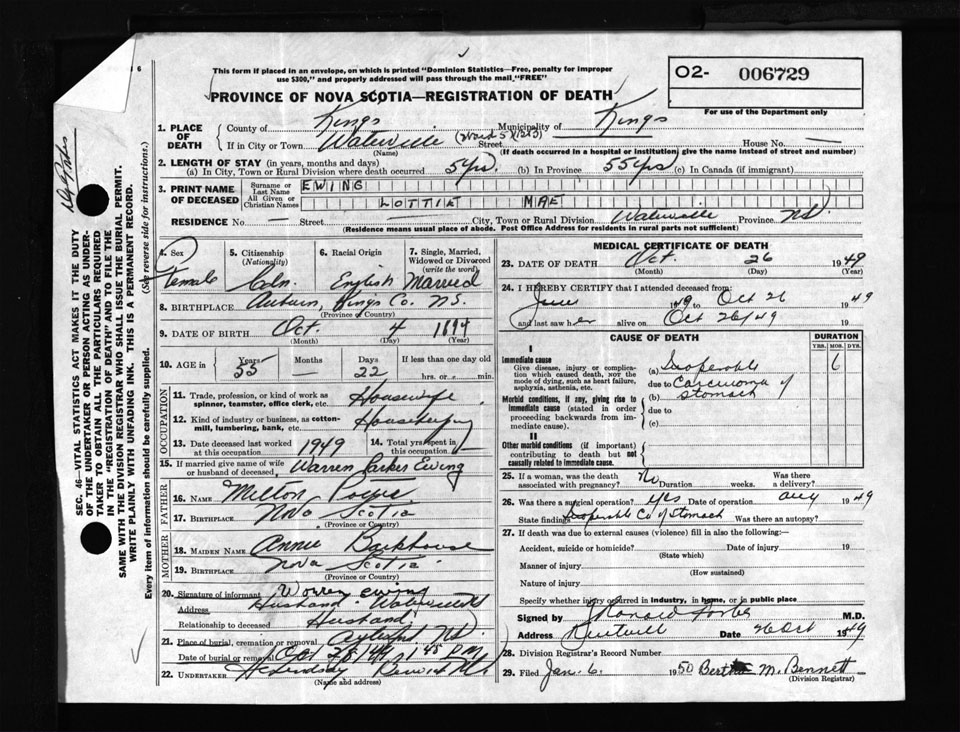 This form if placed in an envelope, on which is printed "Dominion Statistics—Free, penalty for improper
use $300," and properly addressed will pass through the mail, "FREE"
O2- 006729
For use of the Department only
PROVINCE OF NOVA SCOTIA—REGISTRATION OF DEATH
1. PLACE OF DEATH County of Kings Municipality of Kings
If in City or Town Waterville (Ward 5) Street House No. —
(Name) (If death occurred in a hospital or institution, give the name instead of street and number)
2. LENGTH OF STAY (in years, months and days)
(a) In City, Town or Rural Division where death occurred 5 yrs. (b) In Province 55 yrs (c) In Canada (if immigrant)
3. PRINT NAME OF DECEASED Surname or Last Name EWING
All Given or Christian Names LOTTIE MAE
RESIDENCE No — Street — City, Town or Rural Division Waterville Province NS.
(Residence means usual place of abode. Post Office Address for residents in rural parts not sufficient)
4. Sex Female
5. Citizenship (Nationality) Cdn.
6. Racial Origin English
7. Single, Married, Widowed or Divorced (write the word) Married
8. BIRTHPLACE Auburn, Kings Co. N.S.
(Province or Country)
9. DATE OF BIRTH Oct. 4 1894
(Month) (Day) (Year)
10. AGE in Years 55 Months — Days 22 If less than one day old hrs. or min.
OCCUPATION
11. Trade, profession, or kind of work as spinner, teamster, office clerk, etc. Housewife
12. Kind of industry or business, as cotton-mill, lumbering, bank, etc. Housekeeping
13. Date deceased last worked at this occupation 1949 14. Total yrs. spent in this occupation
15. If married give name of wife or husband of deceased Warren Parker Ewing
FATHER
16. NAME Milton
17. BIRTHPLACE Nova Scotia
(Province or Country)
MOTHER
18. MAIDEN NAME Annie Backhouse
19. BIRTHPLACE Nova Scotia
(Province or Country)
20. Signature of informant Warren Ewing
Address Husband Waterville
Relationship to deceased Husband
21. Place of burial, cremation or removal Aylesford NS.
Date of burial or removal Oct 28/49 1 45 P.M.
22. UNDERTAKER Berwick N.S.
(Name and address)
MEDICAL CERTIFICATE OF DEATH
23. DATE OF DEATH Oct. 26 1949
(Month) (Day) (Year)
24. I HEREBY CERTIFY that I attended deceased from:
June 1949 to Oct 26 1949
and last saw her alive on Oct 26/49 19
CAUSE OF DEATH DURATION
YRS. MOS. DYS.
I
Immediate cause
Give disease, injury or complication which caused death, not the mode of dying, such as heart failure, asphyxia, asthenia, etc.
(a) Inoperable 6
due to Carcinoma of
Stomach
Morbid conditions, if any, giving rise to immediate cause (stated in order proceeding backwards from immediate cause).
(b)
due to
(c)
II
Other morbid conditions (if important) contributing to death but not causally related to immediate cause.
25. If a woman, was the death associated with pregnancy? No Duration weeks. Was there a delivery?
26. Was there a surgical operation? Yes Date of operation Aug 1949
State findings Inoperable Ca of Stomach Was there an autopsy?
27. If death was due to external causes (violence) fill in also the following:—
Accident, suicide or homicide? Date of injury 19
(State which)
Manner of injury
(How sustained)
Nature of injury
Specify whether injury occurred in industry, in home, or in public place
Signed by Ronald Forbes M.D.
Address Kentville Date 26 Oct 1949
28. Division Registrar's Record Number
29. Filed Jan. 6 1950 Bertha M. Bennett
(Division Registrar)
SEC. 46—VITAL STATISTICS ACT MAKES IT THE DUTY
OF THE UNDERTAKER OR PERSON ACTING AS UNDER-
TAKER TO OBTAIN ALL THE PARTICULARS REQUIRED
IN THE "REGISTRATION OF DEATH" AND TO FILE THE
SAME WITH THE DIVISION REGISTRAR WHO SHALL ISSUE THE BURIAL PERMIT.
WRITE PLAINLY WITH UNFADING INK. THIS IS A PERMANENT RECORD.
Every item of information should be carefully supplied. (See reverse side for instructions.)